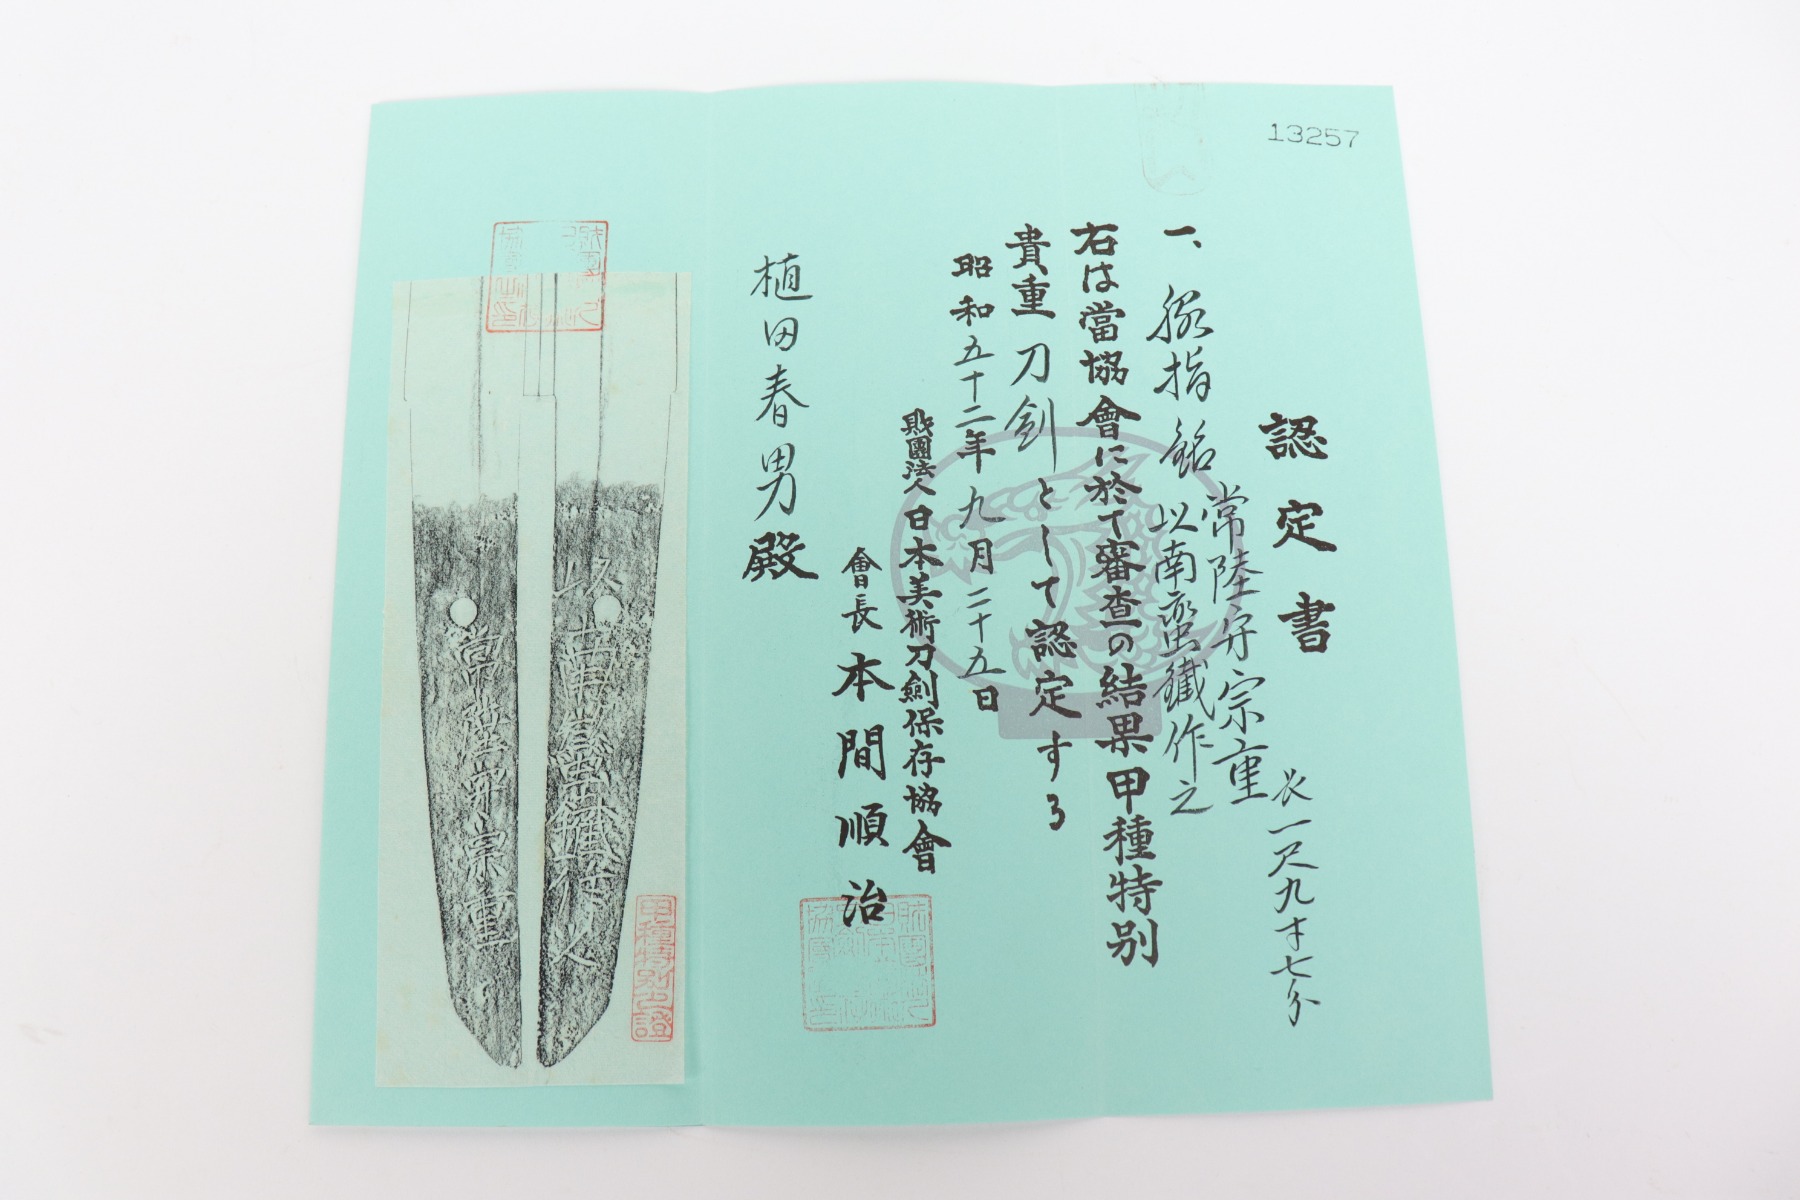 13257
認定書
一、脇指 銘 常陸守宗重
以南蛮鐵作之
長一尺九寸七分
右は當協會に於て審査の結果甲種特別
貴重刀剣として認定する
昭和五十二年九月二十五日
財團法人日本美術刀劍保存協會
會長 本間順治
植田春男殿
以南蛮鐵作之
常陸守宗重
甲種特別之證